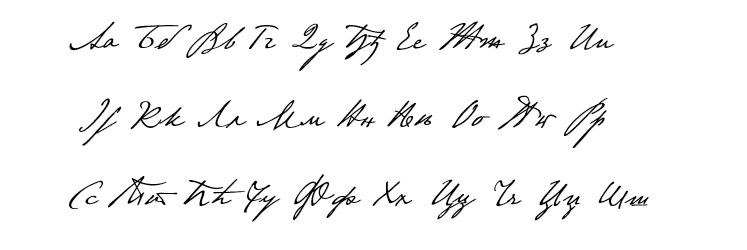 Аа Бб Вв Гг Дд Ђђ Ее Жж Зз Ии
Јј Кк Лл Мм Нн Њњ Оо Пп Рр
Сс Тт Ћћ Уу Фф Хх Цц Чч Џџ Шш